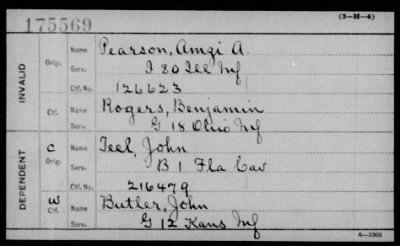 175569
(3-H-4)
INVALID
Orig.
Name Pearson, Amzi A.
Serv. I 80 Ill Inf
Ctf. No. 126623
Ctf.
Name Rogers, Benjamin
Serv. G 18 Ohio Inf
DEPENDENT
C
Orig.
Name Teel, John
Serv. B 1 Fla Cav
Ctf. No. 216479
W
Ctf.
Name Butler, John
Serv. G 12 Kans Inf
6-1903